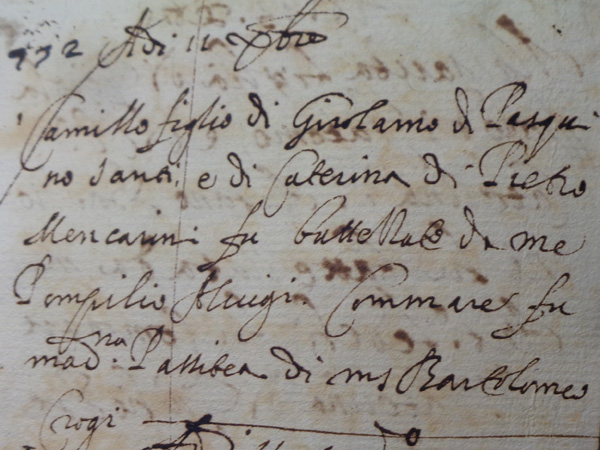 772 Adi 11 Xbre
Camillo figlio di Girolamo di Pasqui
no Santi, e di Caterina di Pietro
Mencarini fu battezzato da me
Pompilio Aluigi. Commare fu
mad.na Passitea di ms Bartolomeo
Crogi